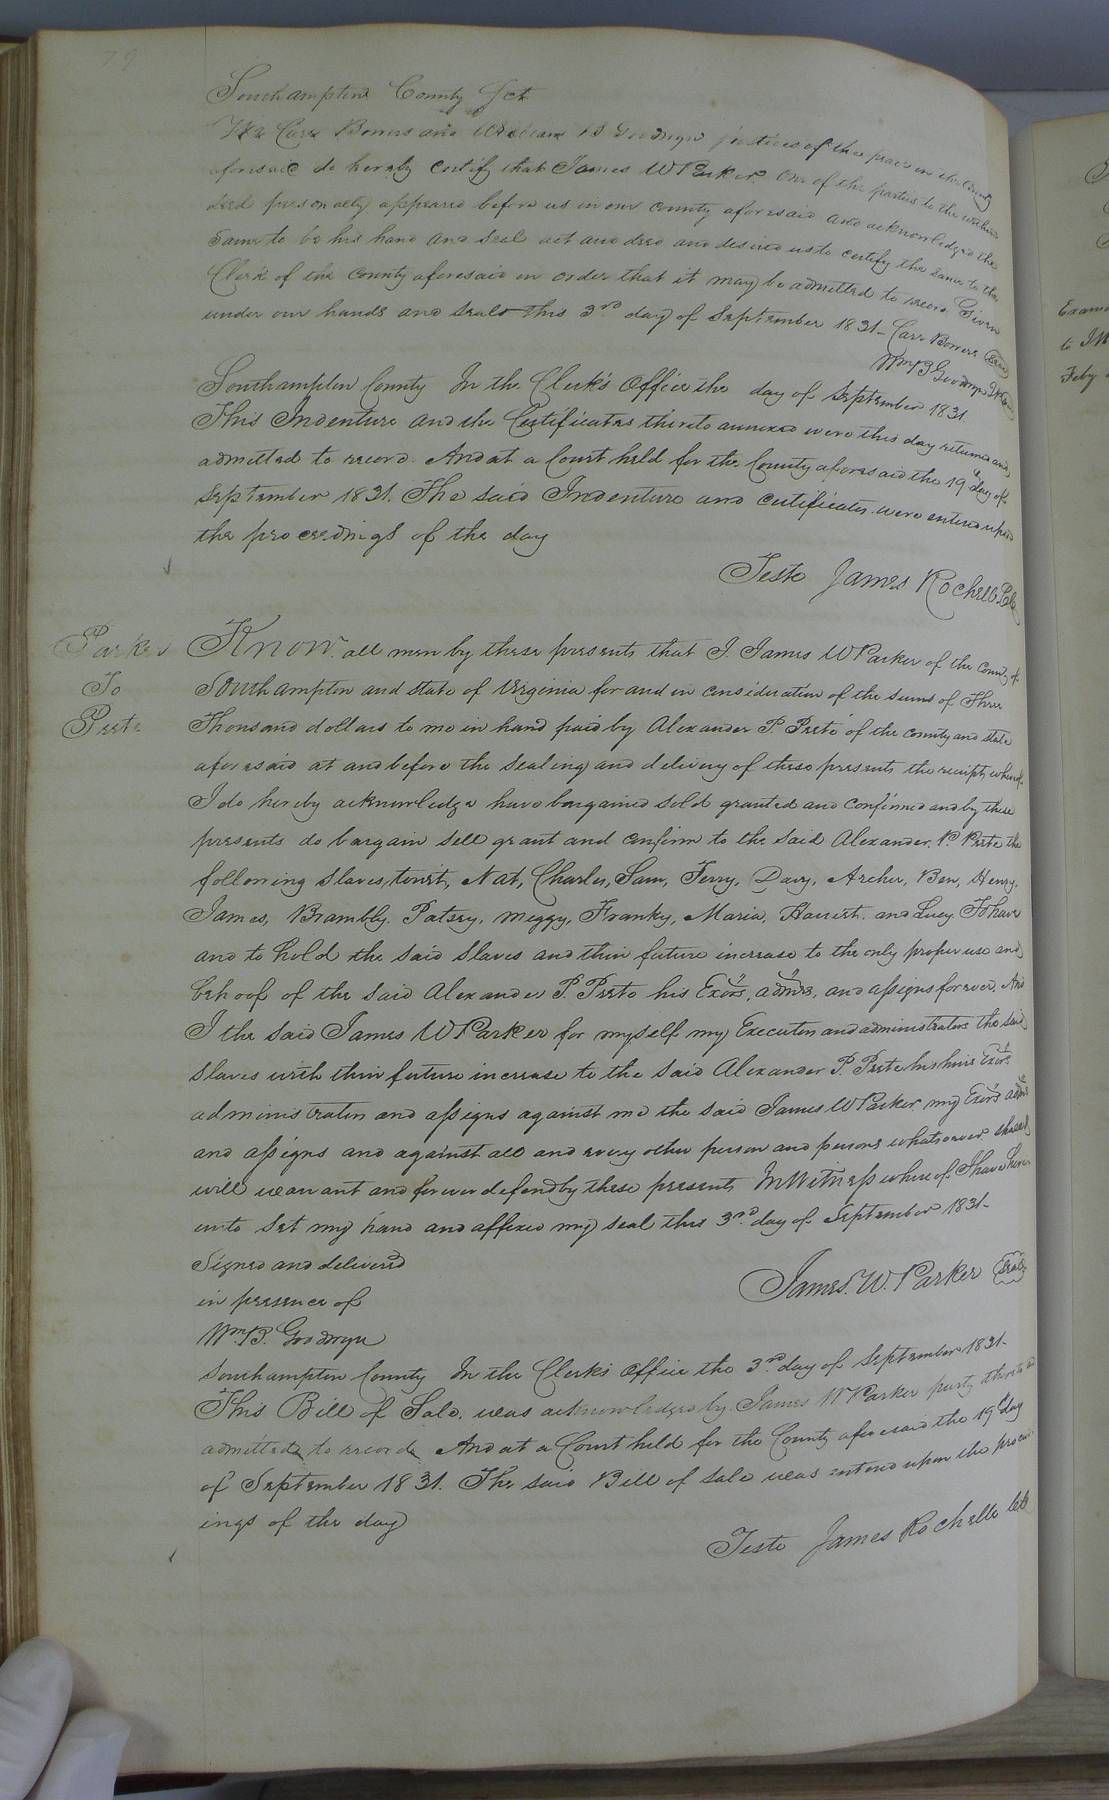 79
Southampton County Sct
We Carr Bowers and William B Goodwyn justices of the peace in the County
aforesaid do hereby certify that James W Parker one of the parties to the within
deed personally appeared before us in our county aforesaid and acknowledged the
same to be his hand and seal act and deed and desired us to certify the same to the
Clerk of the county aforesaid in order that it may be admitted to record. Given
under our hands and seals this 3rd day of September 1831- Carr Bowers (Seal)
Wm B Goodwyn
Southampton County In the Clerk's Office the day of September 1831.
This Indenture and the Certificates thereto annexed were this day returned and
admitted to record. And at a Court held for the County aforesaid the 19th day of
September 1831. The said Indenture and certificates were entered upon
the proceedings of the day
Teste James Rochelle Clk
Parker
To
Peete
Know all men by these presents that I James W Parker of the County of
Southampton and state of Virginia for and in consideration of the sum of Three
Thousand dollars to me in hand paid by Alexander P. Peete of the county and state
aforesaid at and before the sealing and delivery of these presents the receipt whereof
I do hereby acknowledge have bargained sold granted and confirmed and by these
presents do bargain sell grant and confirm to the said Alexander P. Peete the
following slaves, towit, Nat, Charles, Sam, Jerry, Davy, Archer, Ben, Henry,
James, Brambly, Patsey, Meggy, Franky, Maria, Harriet. and Lucy. To have
and to hold the said slaves and their future increase to the only proper use and
behoof of the said Alexander P. Peete his Exors, admrs, and assigns forever. And
I the said James W Parker for myself my Executors and administrators the said
slaves with their future increase to the said Alexander P. Peete his heirs Exors
administrators and assigns against me the said James W Parker my Exors admrs
and assigns and against all and every other person and persons whatsoever shall &
will warrant and forever defend by these presents In Witness whereof I have here
unto set my hand and affixed my seal this 3rd day of September 1831-
Signed and delivered
in presence of
Wm B. Goodwyn
James. W. Parker (Seal)
Southampton County In the Clerk's Office the 3rd day of September 1831-
This Bill of Sale. was acknowledged by James W Parker party thereto and
admitted to record. And at a Court held for the County aforesaid the 19th day
of September 1831. The said Bill of sale was entered upon the proceed
ings of the day
Teste James Rochelle Clk
Examd
to
Feby